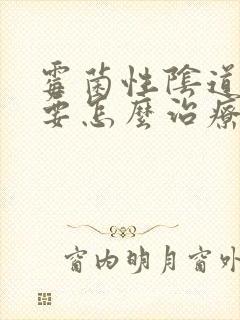 霉菌性陰道
要怎麼治療
窗内明月窗外